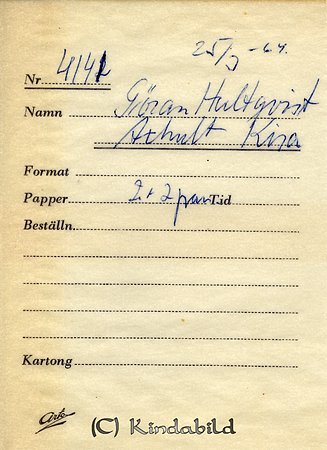 25/3 -64.
Nr 4141
Namn Göran Hultqvist
Kisa
Format
Papper 2 + 2 Tid
Beställn.
Kartong
Ark
(C) Kindabild